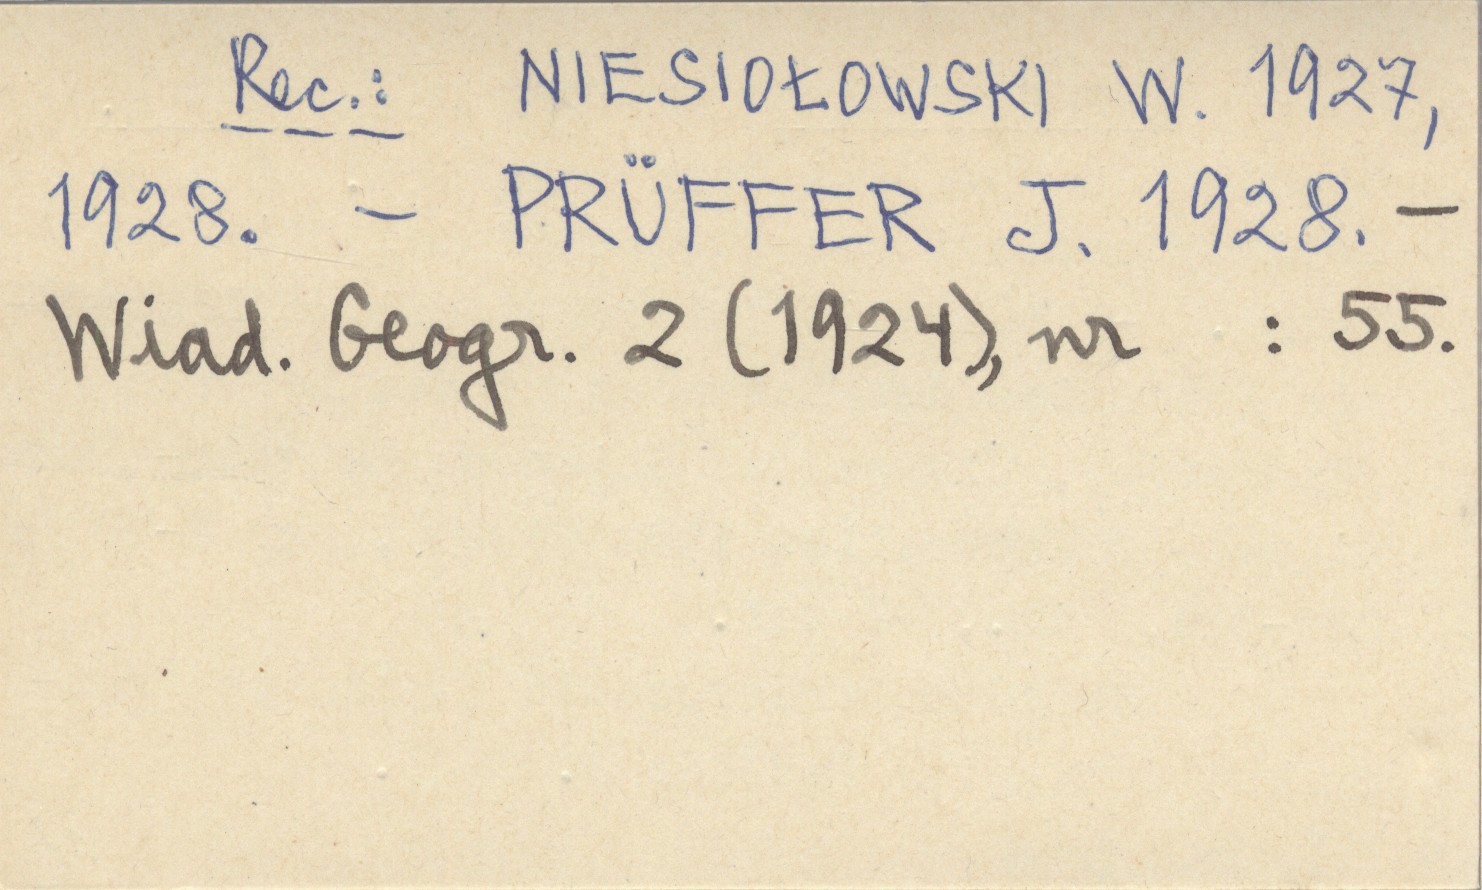 Rec.: NIESIOŁOWSKI W. 1927,
1928. – PRÜFFER J. 1928. –
Wiad. Geogr. 2 (1924), nr : 55.